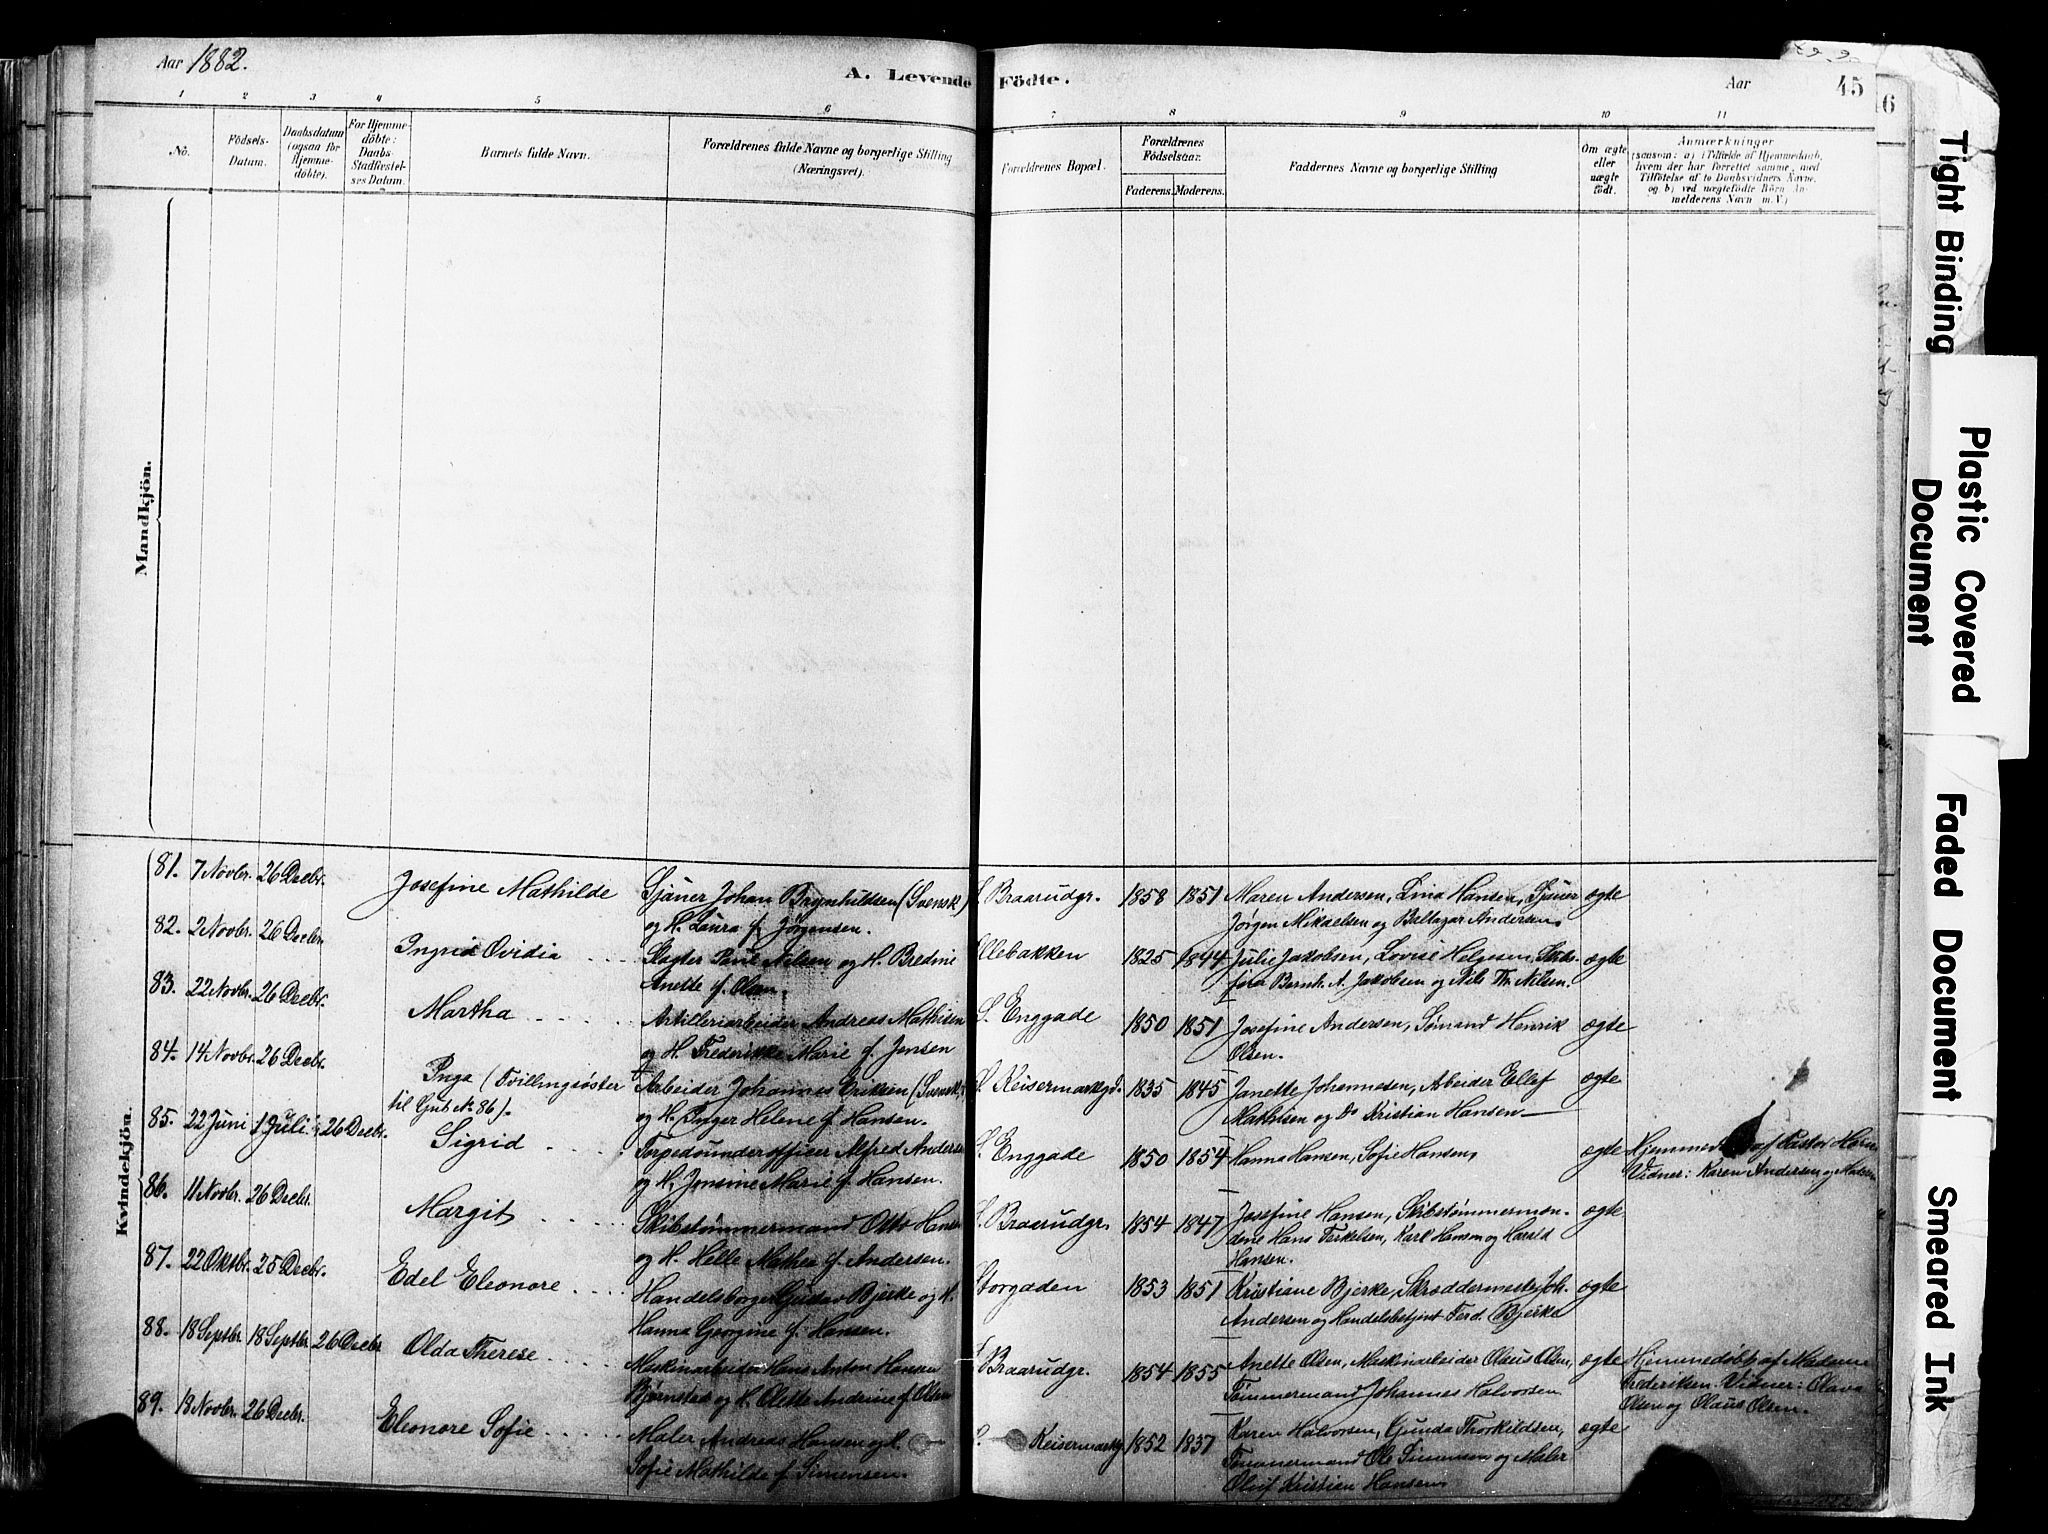 Aar 1882.
A. Levende Födte.
Aar
45
6
1 2 3 4 5 6 7 8 9 10 11
No.
Födsels-
Datum.
Daabsdatum
(ogsaa for
Hjemme-
döbte).
For Hjemme-
döbte:
Daabs-
Stadfæstel-
ses Datum.
Barnets fulde Navn.
Forældrenes fulde Navne og borgerlige Stilling
(Næringsvei).
Forældrenes Bopæl.
Forældrenes
Födselsaar.
Faderens. Moderens.
Faddernes Navne og borgerlige Stilling
Om ægte
eller
uægte
födt.
Anmærkninger
(saasom: a) i Tilfælde af Hjemmedaab,
hvem der har forrettet samme, med
Tilföielse af to Daabsvidners Navne,
og b) ved uægtefödte Börn An-
melderens Navn m.V.)
Mandkjön.
Kvindekjön.
81. 7 Novbr. 26 Decbr. Josefine Mathilde Sjauer Johan Brynhildsen (Svensk) Braarudgr. 1858 1851 Maren Andersen, Lina Hansen, Sjauer ægte
og H. Laura f. Jørgensen. Jørgen Mikaelsen og Baltazar Andersen.
82. 2 Novbr. 26 Decbr. Ingrid Ovidia Slagter Paul Nilsen og H. Bredine Ollebakken 1825 1844 Julie Jakobsen, Lovise Helgesen, Skibs- ægte
Anette f. Olsen. fører Bernh. A. Jakobsen og Nils Th. Nilsen.
83. 22 Novbr. 26 Decbr. Martha Artilleriarbeider Andreas Mathisen S. Enggade 1850 1851 Josefine Andersen, Sømand Henrik ægte
og H. Frederikke Marie f. Jensen Olsen.
84. 14 Novbr. 26 Decbr. Inga (Tvillingsøster Arbeider Johannes Eriksen (Svensk) Keisermarkgd. 1835 1845 Janette Johannesen, Abeider Ellef ægte
til Gut No 86). og H. Inger Helene f. Hansen. Mathisen og Do Kristian Hansen
85. 22 Juni 1 Juli 26 Decbr. Sigrid Torpedounderofficer Alfred Andersen S. Enggade 1850 1854 Hanna Hansen, Sofie Hansen ægte Hjemmed af Pastor Horn
og H. Jensine Marie f. Hansen. Vidner: Karen Andersen og
86. 11 Novbr. 26 Decbr. Margit Skibstømmermand Otto Hansen Braarudgr. 1854 1847 Josefine Hansen, Skibstømmermæn- ægte
og H. Helle Mathea f. Andersen. dene Hans Terkelsen, Karl Hansen og Harald
Hansen.
87. 22 Oktbr. 25 Decbr. Edel Eleonore Handelsborger Gustav Bjerke og H. Storgaden 1853 1851 Kristiane Bjerke, Skræddermester Joh. ægte
Hanna Georgine f. Hansen. Andersen og Handelsbetjent Ferd. Bjerke
88. 18 Septbr. 18 Septbr. 26 Decbr Olda Therese Maskinarbeider Hans Anton Hansen Braarudgr. 1854 1855 Anette Olsen, Maskinarbeider Olaus Olsen, ægte Hjemmedøbt af Madam
Bjørnstad og H. Olette Andrine f. Olsen Tømmermand Johannes Halvorsen. Frederiksen. Vidner: Olava
Olsen og Olaus Olsen.
89. 18 Novbr. 26 Decbr. Eleonore Sofie Maler Andreas Hansen og H. Keisermarkg. 1852 1837 Karen Halvorsen, Gunda Thorkildsen, ægte
Sofie Mathilde f. Simensen. Tømmermand Ole Simensen og Maler
Oluf Kristian Hansen
Tight Binding
Plastic Covered
Document
Faded Document
Smeared Ink